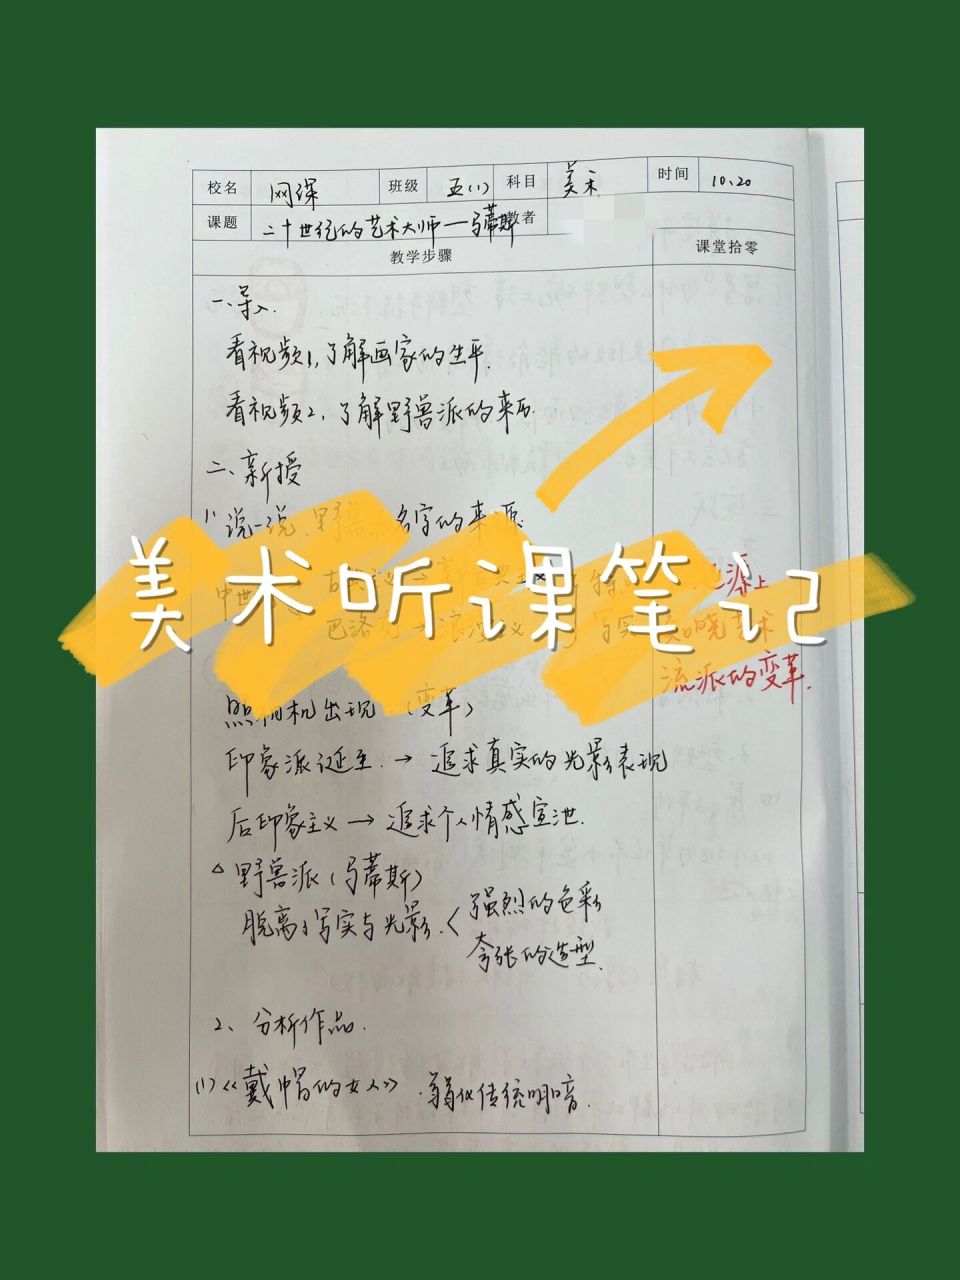 校名 网课 班级 五(1) 科目 美术 时间 10.20
课题 二十世纪的艺术大师—马蒂斯 教者
教学步骤 课堂拾零
一、导入.
看视频1,了解画家的生平.
看视频2,了解野兽派的来历.
二、新授
1、说一说.野兽 名字的来源.
美术听课笔记
中世
巴洛 浪漫 写实
源上
知晓艺术
流派的变革.
照相机出现.(变革)
印象派诞生.→ 追求真实的光影表现
后印象主义 → 追求个人情感宣泄.
△野兽派(马蒂斯)
脱离了写实与光影.< 强烈的色彩
夸张的造型.
2、分析作品.
(1)《戴帽的女人》.弱化传统明暗.